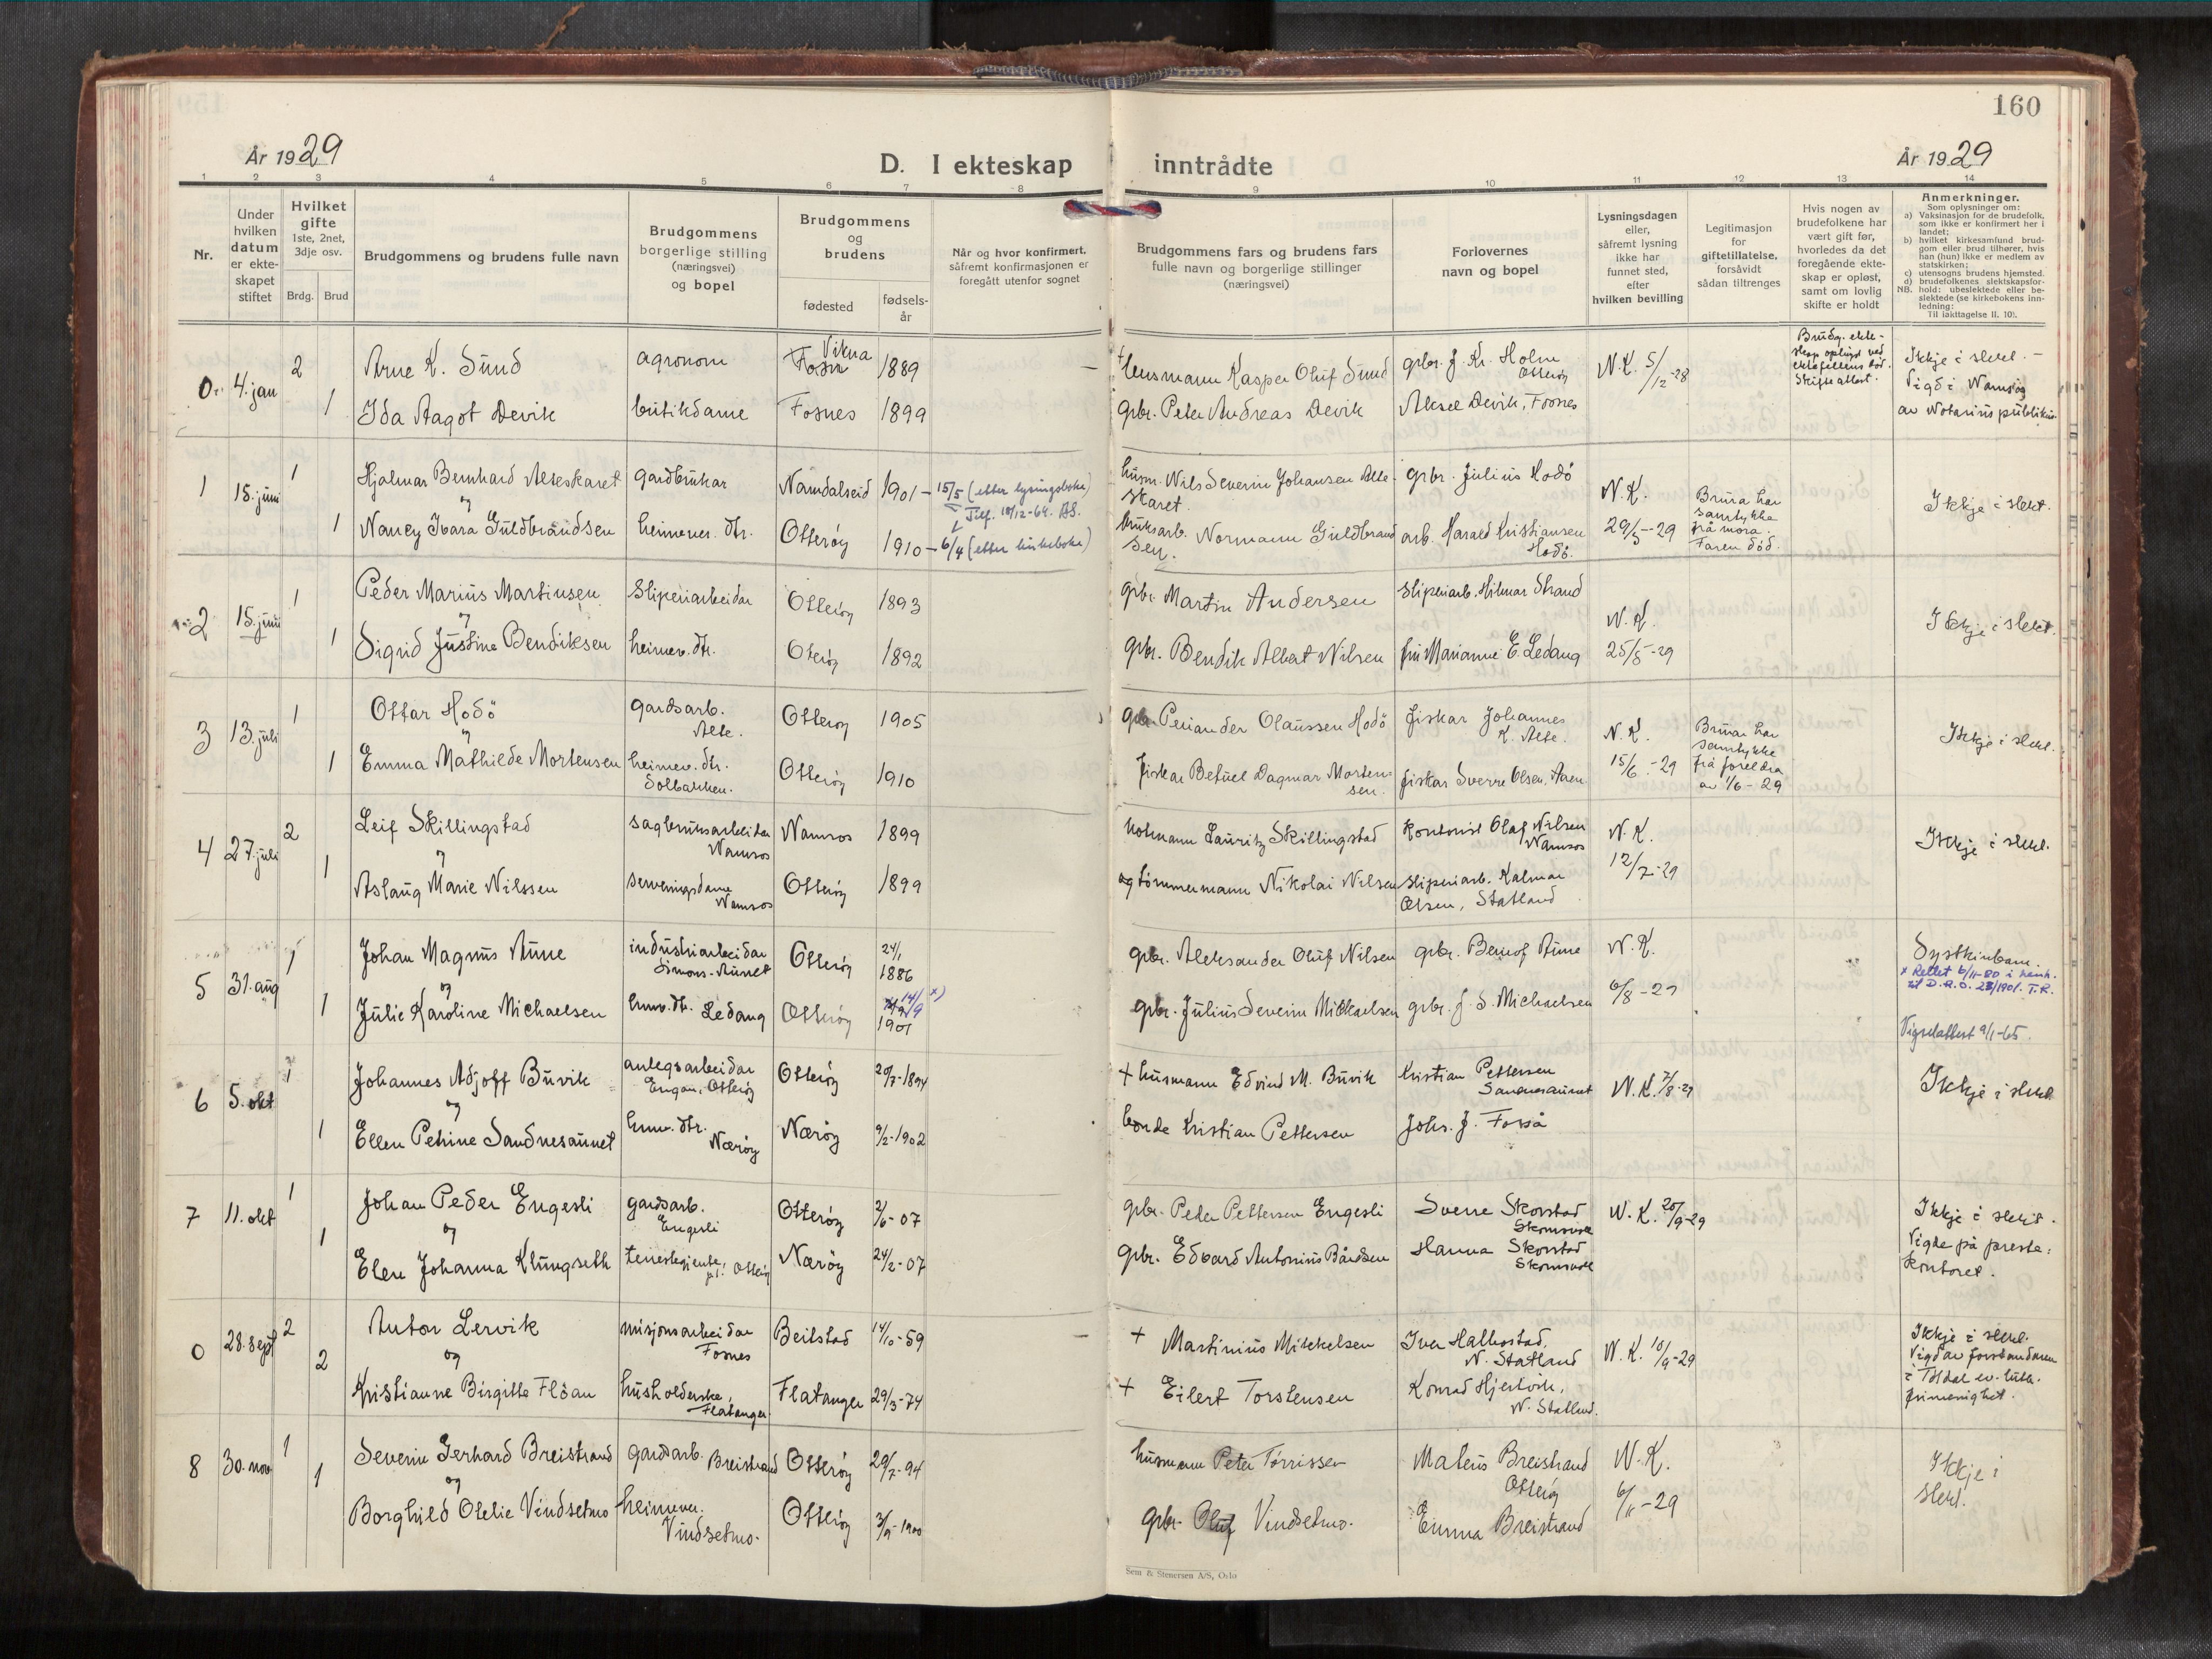 160
År 1929
D. I ekteskap inntrådte
År 1929
1 2 3 4 5 6 7 8 9 10 11 12 13 14
Nr.
Under hvilken datum er ekteskapet stiftet
Hvilket gifte 1ste, 2net, 3dje osv.
Brdg. Brud
Brudgommens og brudens fulle navn
Brudgommens borgerlige stilling (næringsvei) og bopel
Brudgommens og brudens
fødested
fødsels-år
Når og hvor konfirmert.
såfremt konfirmasjonen er
foregått utenfor sognet
Brudgommens fars og brudens fars
fulle navn og borgerlige stillinger
(næringsvei)
Forlovernes
navn og bopel
Lysningsdagen
eller,
såfremt lysning
ikke har
funnet sted,
efter
hvilken bevilling
Legitimasjon
for
giftetillatelse,
forsåvidt
sådan tiltrenges
Hvis nogen av
brudefolkene har
vært gift før,
hvorledes da det
foregående ekte-
skap er opløst,
samt om lovlig
skifte er holdt
Anmerkninger.
Som oplysninger om:
a) Vaksinasjon for de brudefolk,
som ikke er konfirmert her i
landet;
b) hvilket kirkesamfund brud-
gom eller brud tilhører, hvis
han (hun) ikke er medlem av
statskirken;
c) utensogns brudens hjemsted.
d) brudefolkenes slektskapsfor-
NB. hold: ubeslektede eller be-
slektede (se kirkebokens inn-
ledning:
Til iakttagelse II. 10).
0. 4. jan 2 Arne K. Sund agronom Vikna 1889 † lensmann Kasper Oluf Sund grbr. J. Kr. Holm Otterøy N.K. 5/12-28 Brudg. ekte-
skap opløyst ved
ektefellens død.
Skifteattest.
Ikkje i slekt. -
Vigd i Namsos
av Notarius publikus
1 Ida Aagot Devik butikdame Fosnes 1899 gbr. Peter Andreas Devik Aksel Devik, Fosnes
1 15. juni 1 Hjalmar Bernhard Alteskaret gardbrukar Namdalseid 1901 - 15/5 (etter lysingsboka) husm. Nils Severin Johansen Alte-
skaret. grbr. Julius Hodö N.K. 29/5-29 Ikkje i slekt.
og
Tilf. 18/12-64. AS.
1 Nancy Ivara Guldbrandsen heimever. dtr. Otterøy 1910 - 6/4 (etter kirkeboka) bruksarb. Normann Guldbrand
sen. arb. Harald Kristiansen Hodö.
Brura har
samtykke
frå mora
Faren død.
2 15. juni 1 Peder Marius Martinsen Sliperiarbeidar Otterøy 1893 gbr. Martin Andersen Sliperiarb. Hilmar Strand N.K. 25/5-29 Ikkje i slekt.
og
1 Sigrid Justine Bendiksen heimev. dtr. Oterøy 1892 gbr. Bendik Albert Nilsen fru Marianne E. Ledang
3 13. juli 1 Ottar Hodö gardsarb. Alte. Otterøy 1905 gbr. Periander Olaussen Hodö fiskar Johannes K. Alte. N.K. 15/6-29 Ikkje i slekt.
og
1 Emma Mathilde Mortensen heimev. dtr. Solbakken. Otterøy 1910 fiskar Betuel Dagmar Morten
sen. fiskar Sverre Olsen,
Brura har
samtykke
frå foreldra
av 1/6-29
4 27. juli 2 Leif Skillingstad sagbruksarbeidar Namsos Namsos 1899 Lauritz Skillingstad Kontorist Olaf Nilsen Namsos N.K. 12/7-29 Ikkje i slekt.
og
1 Aslaug Marie Nilssen serveringsdame Namsos Otterøy 1899 og tömmermann Nikolai Nilsen sliperiarb. Kalmar
Olsen, Statland
5 31. aug 1 Johan Magnus Aune industriarbeidar Simons-Aunet Otterøy 24/1 1886 gbr. Aleksander Oluf Nilsen grbr. Aune N.K. 6/8-29 Syskinbarn.
og
x Rettet 6/11-80 i henh.
til D.R.O. 23/1901. T.R.
1 Julie Karoline Michaelsen heimv. dtr. Ledang Otterøy 14/9 x) 1901 gbr. Julius Severin Mikkaelsen grbr. J. S. Michaelsen
Vigselattest 9/1-65.
6 5. okt 1 Johannes Adjoff Buvik anlegsarbeidar Engan, Otterøy Otterøy 20/7-1894 + husmann Edvind M. Buvik Kristian Pettersen Sandnesaunet N.K. 7/8-29 Ikkje i slekt.
og
1 Ellen Petrine Sandnesaunet heimv. dtr. Nærøy Nærøy 9/2-1902 bonde Kristian Pettersen Johs. J. Forså
7 11. okt 1 Johan Peder Engesli gardsarb. Engesli Otterøy 2/6-07 gbr. Peder Pettersen Engesli Sverre Skorstad N.K. 20/9-29 Ikkje i slekt.
Vigde på preste-
kontoret.
og
1 Elen Johanna Klungseth tenestegjente, Otterøy Nærøy 24/2-07 gbr. Edvard Antonius Bårdsen Hanna Skorstad
0 28. sept 2 Anton Lervik misjonsarbeidar Fosnes Beitstad 14/10-59 + Martinius Mikkelsen Iver Hallestad, N. Statland N.K. 10/9-29 Ikkje i slekt.
Vigd av forstandaren
i ev. luth.
frimenighet.
og
2 Kristianne Birgitte Flöan husholderske, Flatanger Flatanger 29/3-74 + Eilert Torstensen Konrad Hjertvik, N. Statland.
8 30. nov 1 Severin Gerhard Breistrand gardsarb. Breistrand Otterøy 29/7-94 husmann Peter Tørrissen Mateus Breistrand Otterøy N.K. 6/11-29 Ikkje i
slekt.
og
1 Borghild Otelie Vindsetmo heimever. Vindsetmo. Otterøy 3/9-1900 gbr. Oluf Vindsetmo. Emma Breistrand
Sem & Stenersen A/S, Oslo